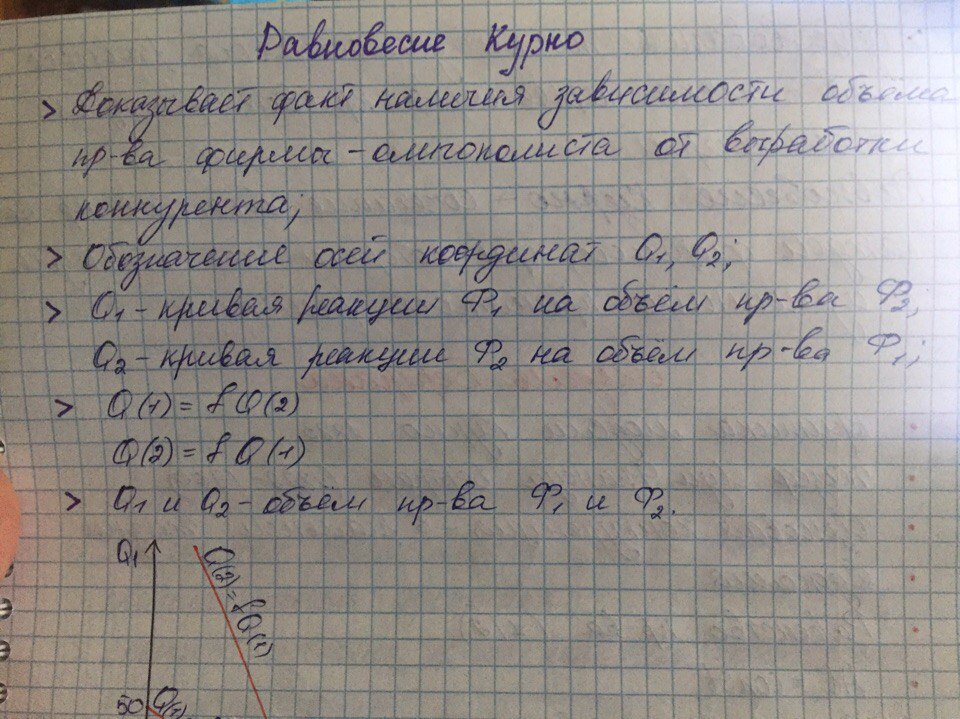 Равновесие Курно
> Доказывает факт наличия зависимости объёма
пр-ва фирмы-олигополиста от выработки
конкурента;
> Обозначение осей координат Q1, Q2;
> Q1 - кривая реакции Ф1 на объём пр-ва Ф2;
Q2 - кривая реакции Ф2 на объём пр-ва Ф1;
> Q(1) = f Q(2)
Q(2) = f Q(1)
> Q1 и Q2 - объём пр-ва Ф1 и Ф2.
Q1
Q(2) = f Q(1)
50
Q(1)